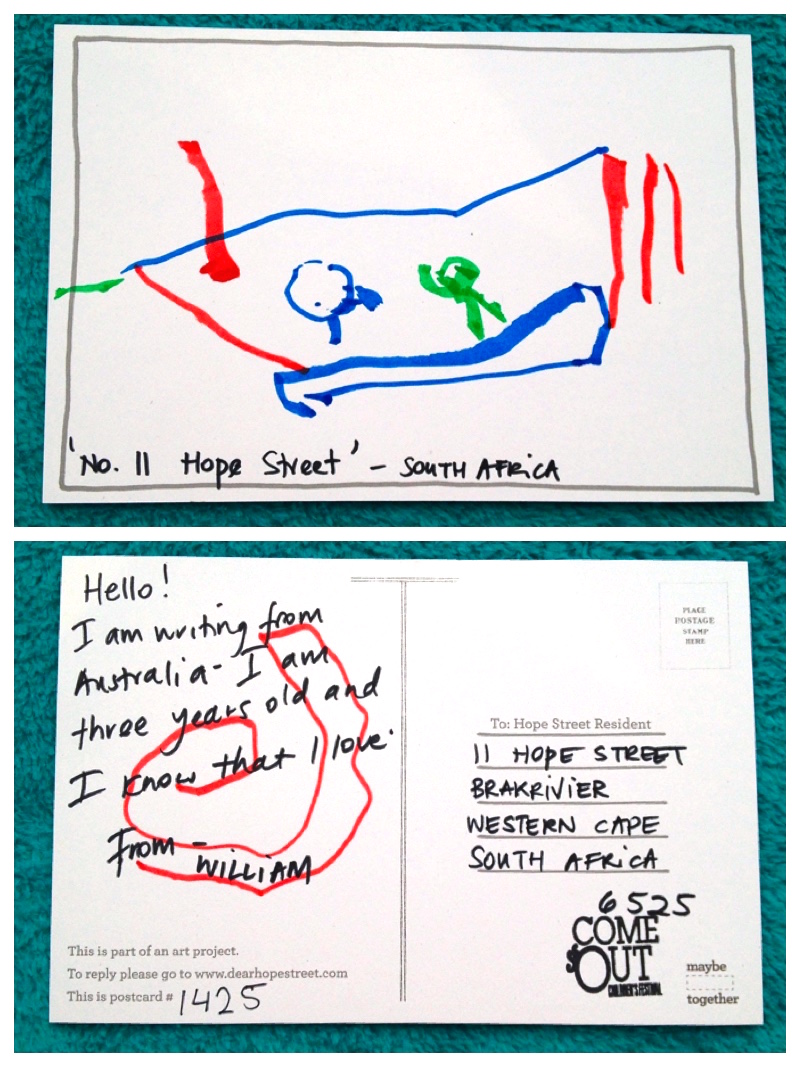 'No. 11 Hope Street' - SOUTH AFRICA
Hello!
I am writing from
Australia - I am
three years old and
I know that I love.
From -
WILLIAM
This is part of an art project.
To reply please go to www.dearhopestreet.com
This is postcard # 1425
PLACE
POSTAGE
STAMP
HERE
To: Hope Street Resident
11 HOPE STREET
BRAKRIVIER
WESTERN CAPE
SOUTH AFRICA
6525
COME
OUT
CHILDREN'S FESTIVAL
maybe
together